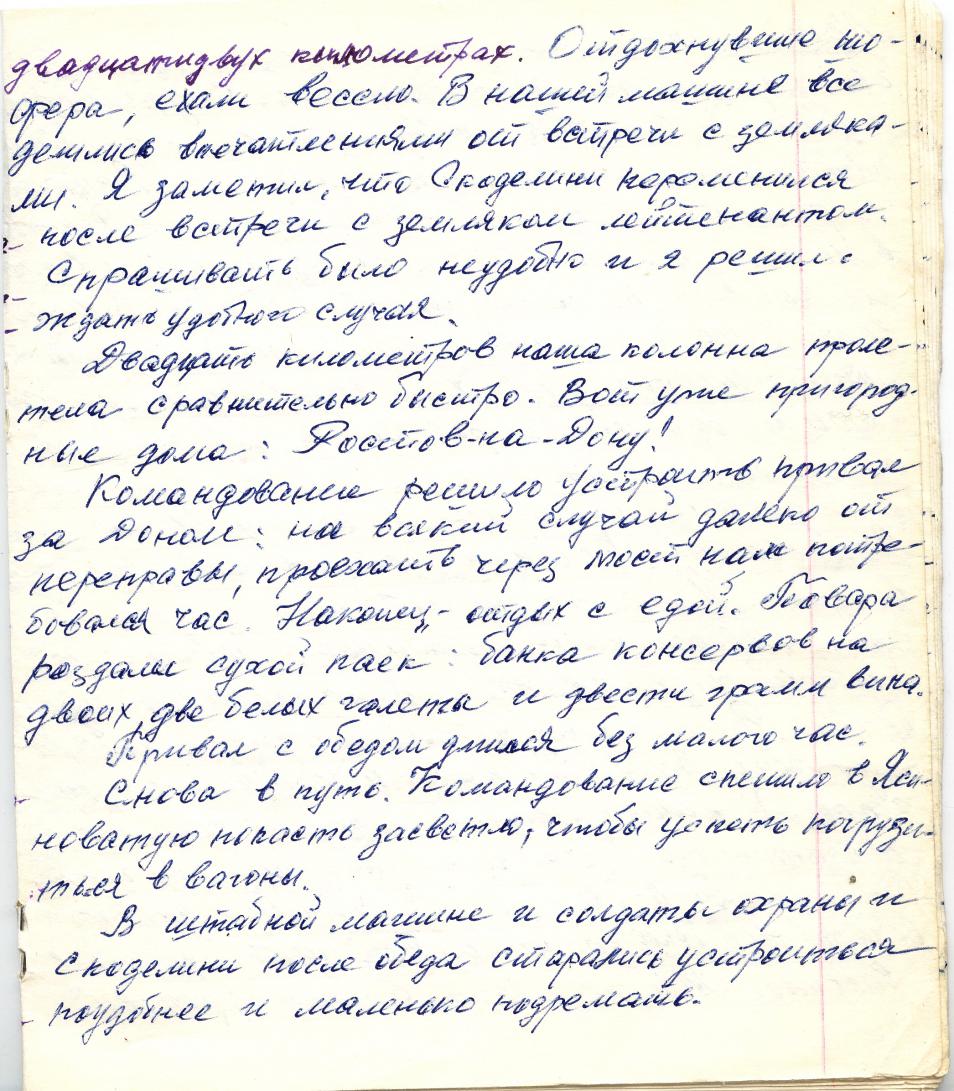 двадцатидвух километрах. Отдохнувшие шо-
фера, ехали весело. В нашей машине все
делились впечатлениями от встречи с земляка-
ми. Я заметил, что Скоделини переменился
после встречи с земляком лейтенантом.
Спрашивать было неудобно и я решил
ждать удобного случая.
Двадцать километров наша колонна проле-
тела сравнительно быстро. Вот уже пригород-
ные дома: Ростов-на-Дону!
Командование решило устроить привал
за Доном: на всякий случай далеко от
переправы, проехать через мост нам потре-
бовался час. Наконец - отдых с едой. Повара
раздали сухой паек: банка консервов на
двоих, две белых галеты и двести грамм вина.
Привал с обедом длился без малого час.
Снова в путь. Командование спешило в Яси-
новатую попасть засветло, чтобы успеть погрузи-
ться в вагоны.
В штабной машине и солдаты охраны и
Скоделини после обеда старались устроиться
поудобнее и маленько подремать.